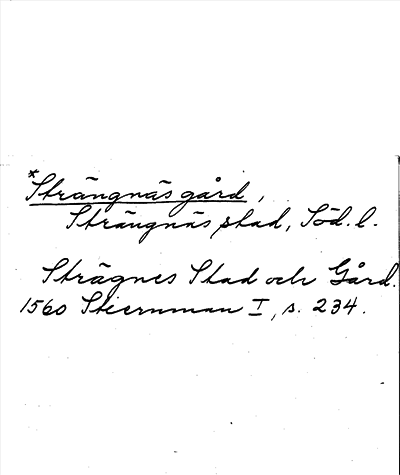 *Strängnäs gård,
Strängnäs stad, Söd. l.
Strägnes Stad och Gård.
1560 Stiernman I, s. 234.